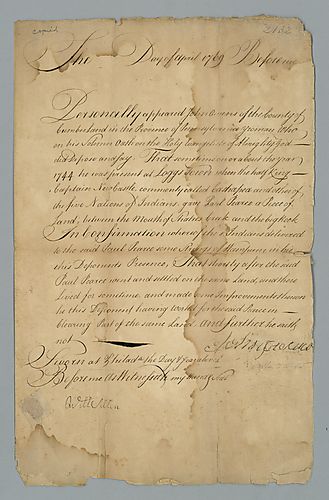 copied
2132
The Day of April 1769 Before me
Personally appeared John Owens of the County of
Cumberland in the Province of Yeoman Who
on his Solemn Oath on the Holy Evangelists of Almighty God
did Depose and say That sometime on or about the year
1744 he was present at Loggs Town when the half King
Captain Newcastle commonly called and others of
the five Nations of Indians gave Paul Pearce a Piece of
Land, between the Mouth of Creek and the big Rock
In Confirmation whereof the Indians delivered
to the said Paul Pearce some Strings of Wampum in
this Deponents Presence, That shortly after the said
Paul Pearce went and settled on the same Land, and there
lived for sometime and made some Improvements thereon
he this Deponent having Worked for the said Pearce in
clearing Part of the same Land And further he saith
not
John Owens
Sworn at Philada the Day & Year above
Before me As Witness my Hand